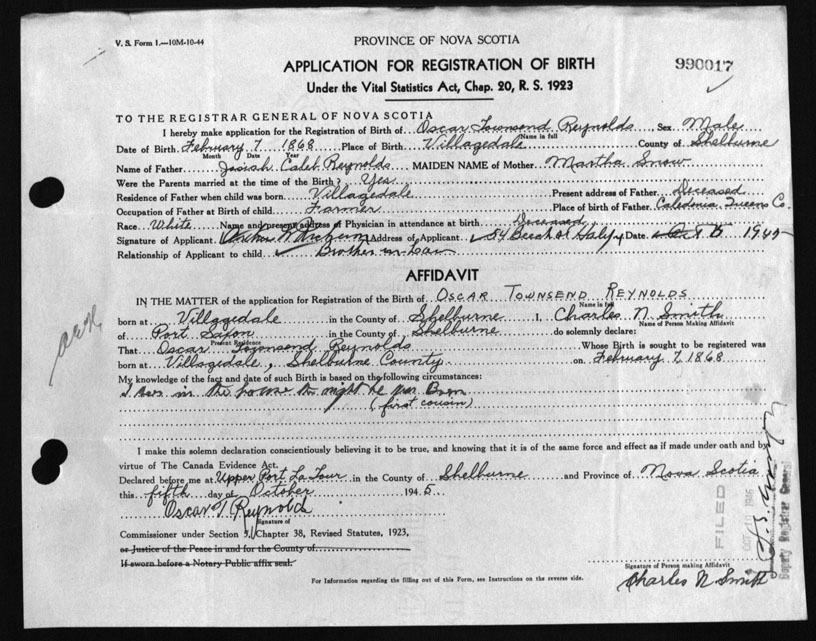 V. S. Form 1.—10M-10-44
PROVINCE OF NOVA SCOTIA
APPLICATION FOR REGISTRATION OF BIRTH
990017
Under the Vital Statistics Act, Chap. 20, R. S. 1923
TO THE REGISTRAR GENERAL OF NOVA SCOTIA
I hereby make application for the Registration of Birth of Oscar Townsend Reynolds, Sex Male
Name in full
Date of Birth February 7 1868 Place of Birth Villagedale County of Shelburne
Month Date Year
Name of Father Josiah Caleb Reynolds MAIDEN NAME of Mother Martha Snow
Were the Parents married at the time of the Birth? Yes
Residence of Father when child was born Villagedale Present address of Father Deceased
Occupation of Father at Birth of child Farmer Place of birth of Father Caledonia Queens Co.
Race White Name and present address of Physician in attendance at birth Deceased
Signature of Applicant Address of Applicant 84 Beech St Date Oct 6 1945
Relationship of Applicant to child Brother in Law
AFFIDAVIT
IN THE MATTER of the application for Registration of the Birth of OSCAR TOWNSEND REYNOLDS
Name in full
born at Villagedale in the County of Shelburne I, Charles N. Smith
Name of Person Making Affidavit
of Port Saxon in the County of Shelburne do solemnly declare:
Present Residence
That Oscar Townsend Reynolds Whose Birth is sought to be registered was
born at Villagedale, Shelburne County on February 7, 1868
My knowledge of the fact and date of such Birth is based on the following circumstances:
I was in the house the night he was Born
(first cousin)
I make this solemn declaration conscientiously believing it to be true, and knowing that it is of the same force and effect as if made under oath and by
virtue of The Canada Evidence Act.
Declared before me at Upper Port La Tour in the County of Shelburne and Province of Nova Scotia
this fifth day of October 1945
Oscar T. Reynolds
Signature of
Commissioner under Section 5, Chapter 38, Revised Statutes, 1923,
or Justice of the Peace in and for the County of
If sworn before a Notary Public affix seal.
Signature of Person making Affidavit
For Information regarding the filling out of this Form, see Instructions on the reverse side.
Charles N Smith
FILED
OCT 10 1946
Deputy Registrar General